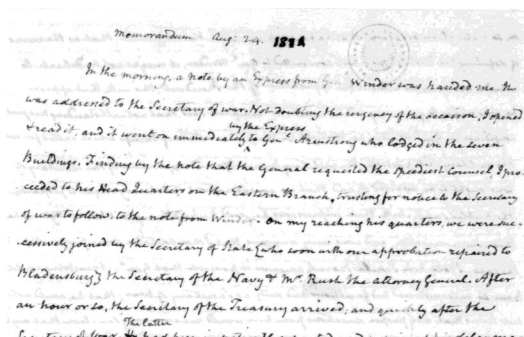 Memorandum Aug: 24. 1814
In the morning, a note by an Express from Genl Winder was handed me. It
was addressed to the Secretary of war. Not doubting the urgency of the occasion, I opened
& read it, and it went on immediately by the Express to Genl. Armstrong who lodged in the seven
Buildings. Finding by the note that the General requested the speediest counsel, I pro-
ceeded to his Head Quarters on the Eastern Branch, trusting for notice to the Secretary
of war to follow, to the note from Winder. On my reaching his quarters, we were suc-
cessively joined by the Secretary of State [who soon with our approbation repaired to
Bladensburg] the Secretary of the Navy & Mr. Rush the Attorney General. After
an hour or so, the Secretary of the Treasury arrived, and quickly after the
The latter